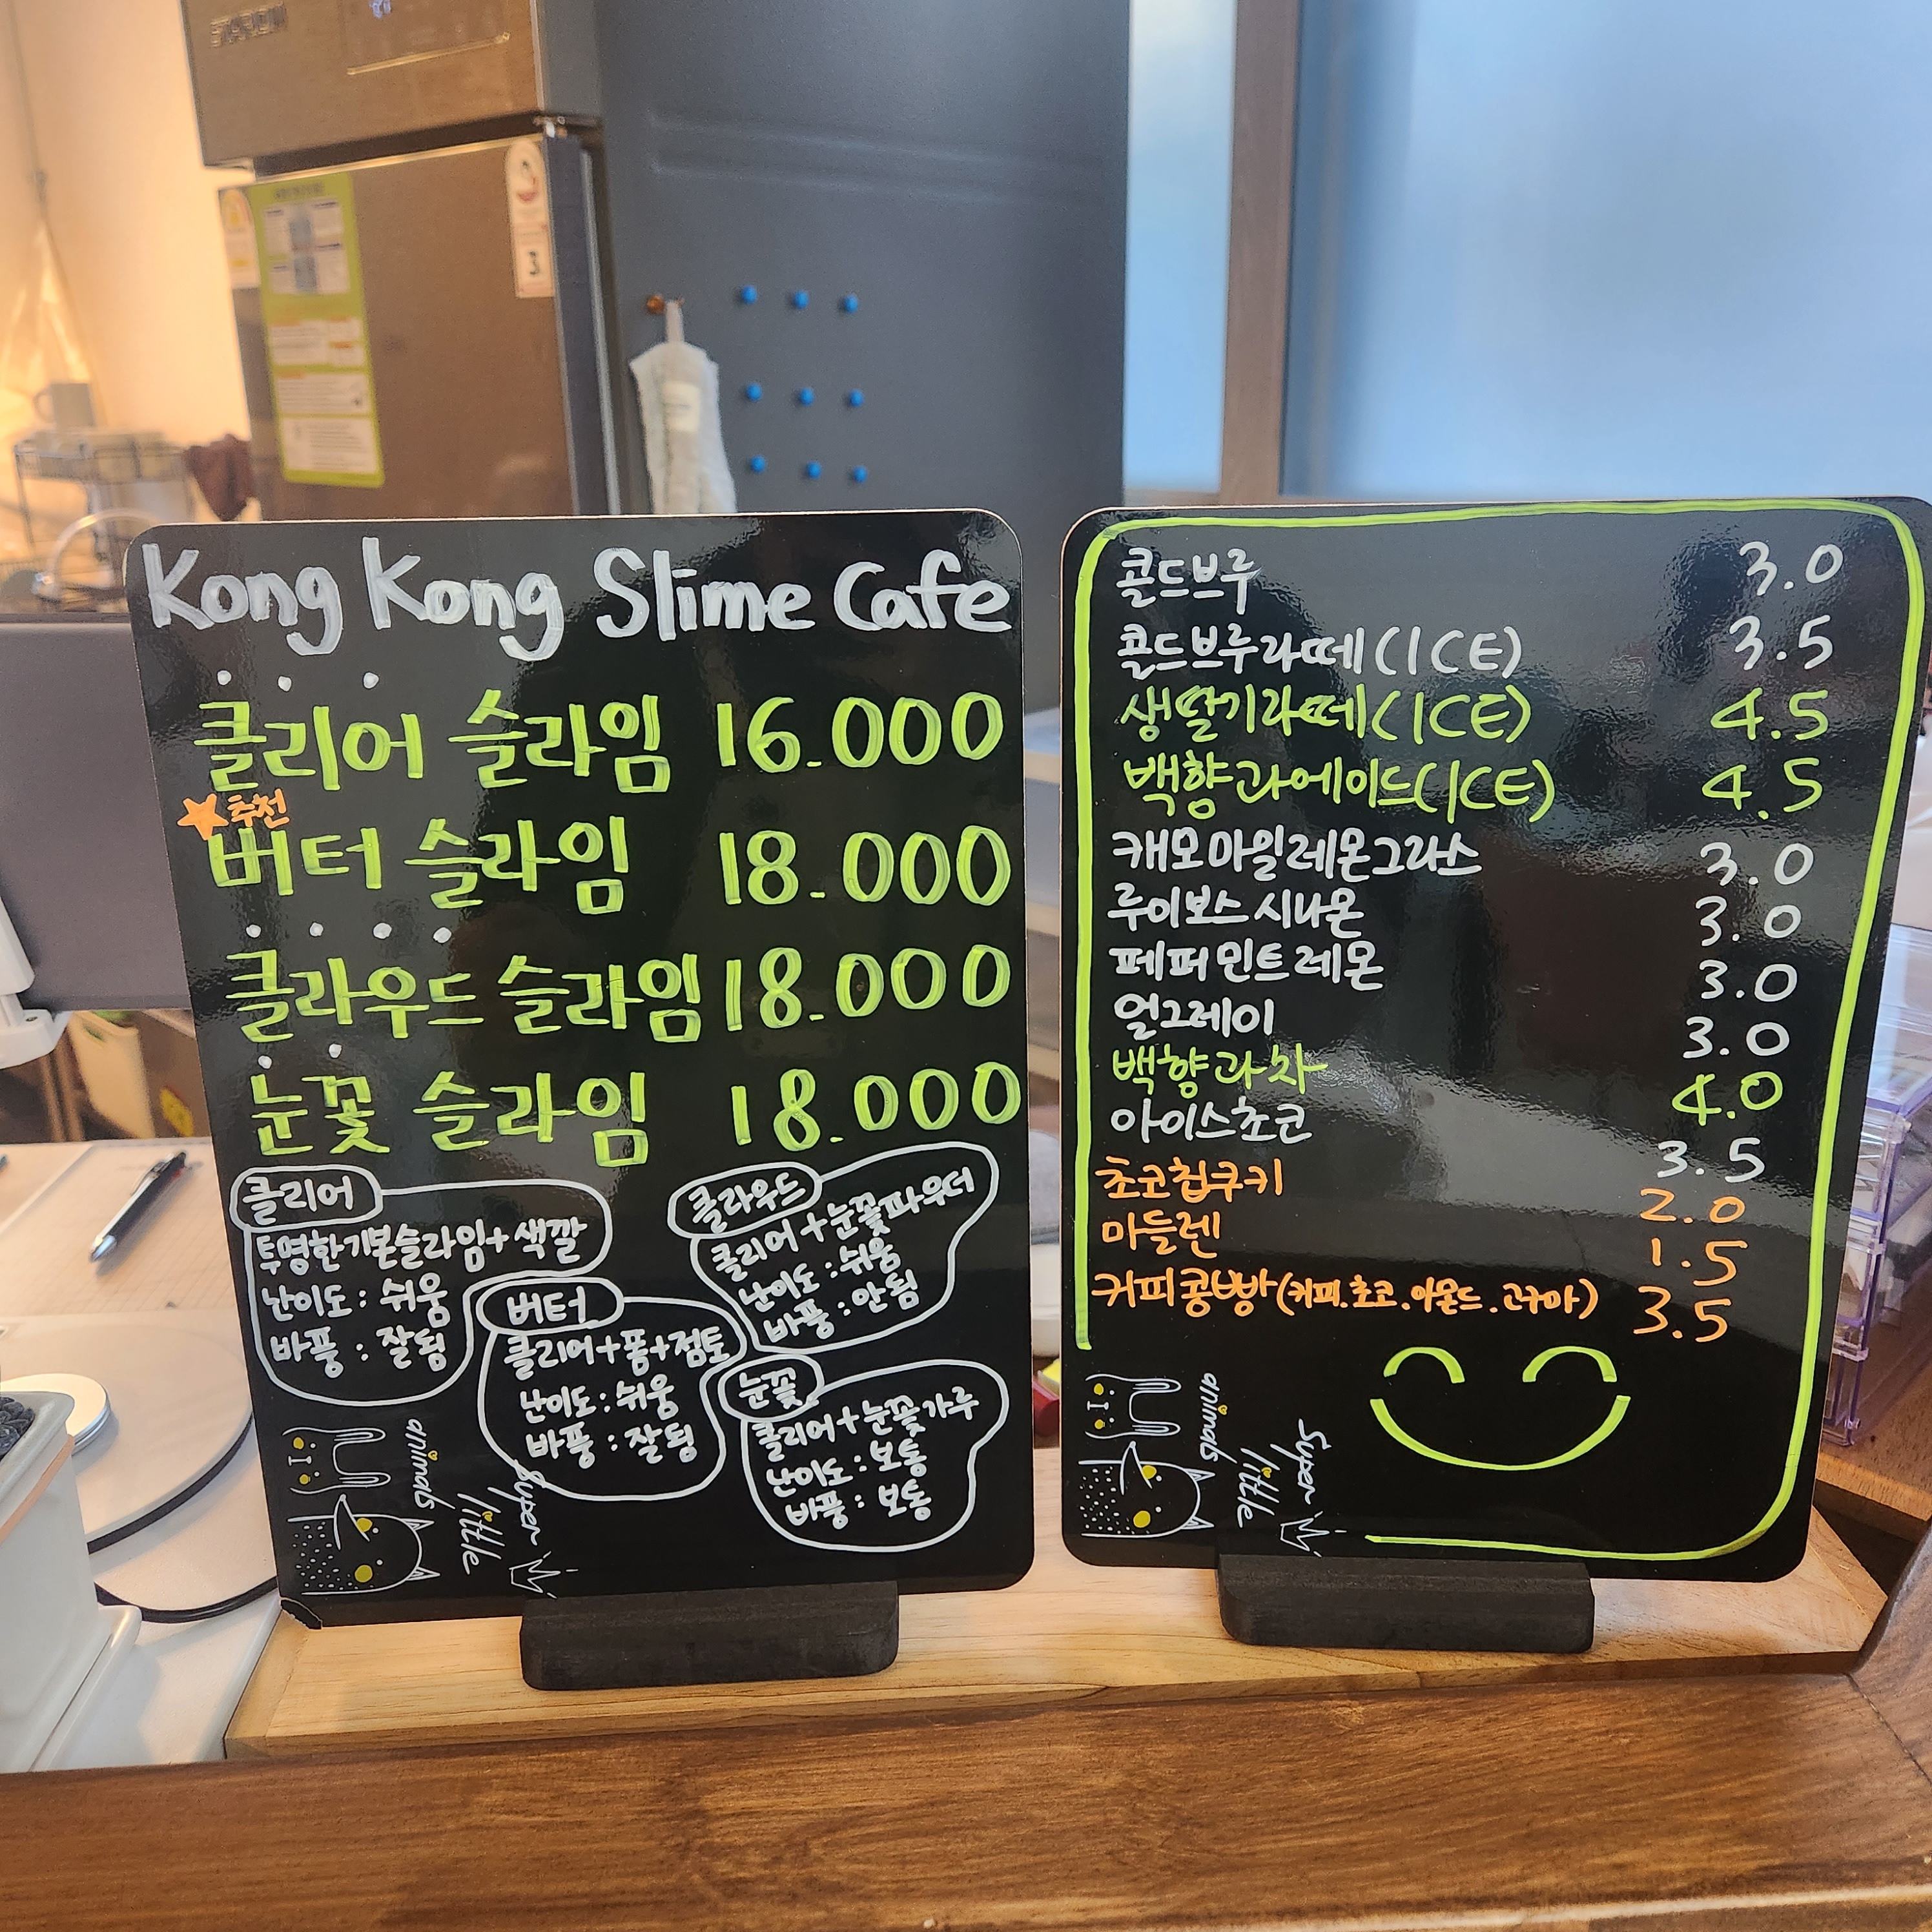 Kong Kong Slime Cafe
클리어 슬라임 16.000
추천
버터 슬라임 18.000
클라우드 슬라임 18.000
눈꽃 슬라임 18.000
클리어
투명한기본슬라임+색깔
난이도 : 쉬움
바풍 : 잘됨
버터
클리어+폼+점토
난이도 : 쉬움
바풍 : 잘됨
클라우드
클리어+눈꽃파우더
난이도 : 쉬움
바풍 : 안됨
눈꽃
클리어+눈꽃가루
난이도 : 보통
바풍 : 보통
super
little
animals
콜드브루 3.0
콜드브루라떼(ICE) 3.5
생딸기라떼(ICE) 4.5
백향과에이드(ICE) 4.5
캐모마일레몬그라스 3.0
루이보스 시나몬 3.0
페퍼민트레몬 3.0
얼그레이 3.0
백향과차 4.0
아이스초코 3.5
초코칩쿠키 2.0
마들렌 1.5
커피콩빵(커피.초코.아몬드.고구마) 3.5
super
little
animals
3